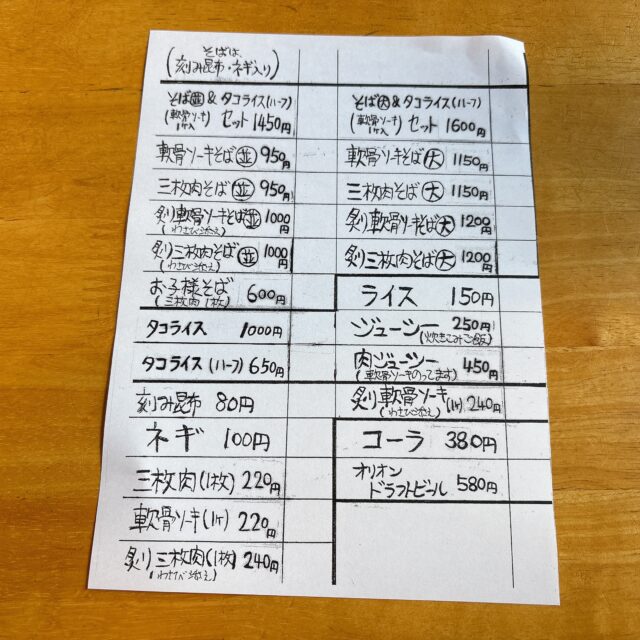 そばは、
(刻み昆布・ネギ入り)
そば㊀並&タコライス(ハーフ)
(軟骨ソーキ1ヶ入) セット 1450円
軟骨ソーキそば 並 950円
三枚肉そば 並 950円
炙り軟骨ソーキそば 並 1000円
(わさび添え)
炙り三枚肉そば 並 1000円
(わさび添え)
お子様そば 600円
(三枚肉 1枚)
タコライス 1000円
タコライス (ハーフ) 650円
刻み昆布 80円
ネギ 100円
三枚肉(1枚) 220円
軟骨ソーキ(1ヶ) 220円
炙り三枚肉(1枚) 240円
(わさび添え)
そば&タコライス(ハーフ)
(軟骨ソーキ) セット 1600円
軟骨ソーキそば 大 1150円
三枚肉そば 大 1150円
炙り軟骨ソーキそば 大 1200円
炙り三枚肉そば 大 1200円
ライス 150円
ジューシー 250円
(炊きこみご飯)
肉ジューシー 450円
(軟骨ソーキのってます)
炙り軟骨ソーキ(1ヶ) 240円
(わさび添え)
コーラ 380円
オリオン
ドラフトビール 580円